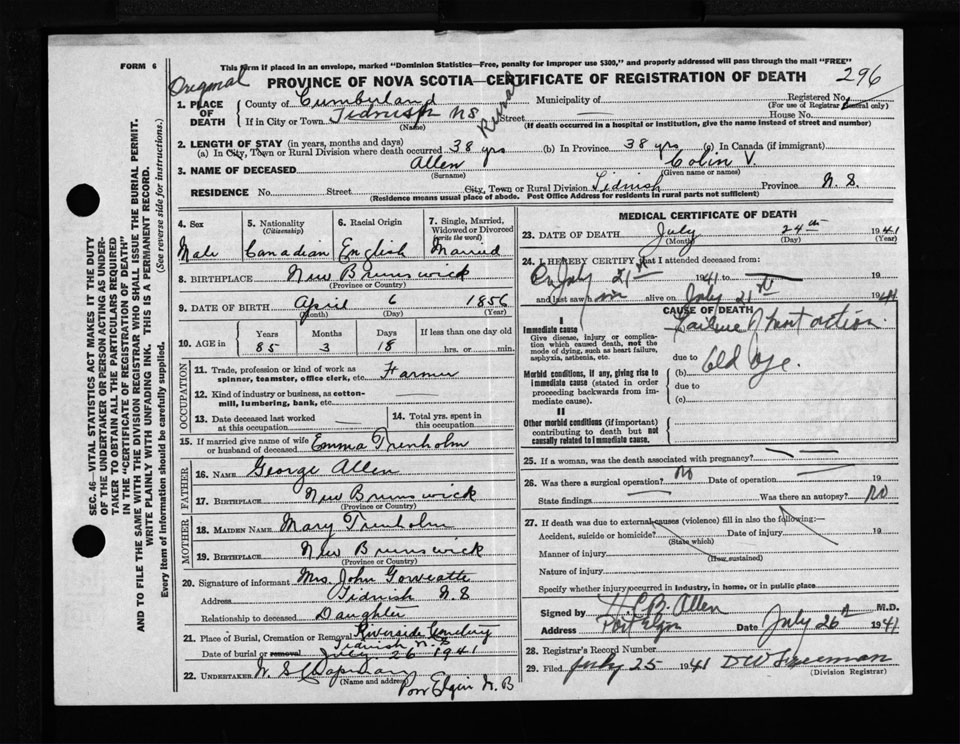 FORM 6
This form if placed in an envelope, marked "Dominion Statistics—Free, penalty for improper use $300," and properly addressed will pass through the mail "FREE"
Original
PROVINCE OF NOVA SCOTIA—CERTIFICATE OF REGISTRATION OF DEATH
296
1. PLACE OF DEATH
County of Cumberland Municipality of — Registered No.
(For use of Registrar General only)
If in City or Town Tidnish NS Rural Street House No.
(Name) (If death occurred in a hospital or institution, give the name instead of street and number)
2. LENGTH OF STAY (in years, months and days)
(a) In City, Town or Rural Division where death occurred 38 yrs (b) In Province 38 yrs (c) In Canada (if immigrant)
3. NAME OF DECEASED Allen Colin V.
(Surname) (Given name or names)
RESIDENCE No. Street City, Town or Rural Division Tidnish Province N. S.
(Residence means usual place of abode. Post Office Address for residents in rural parts not sufficient)
4. Sex
Male
5. Nationality
(Citizenship)
Canadian
6. Racial Origin
English
7. Single, Married, Widowed or Divorced
(write the word)
Married
8. BIRTHPLACE New Brunswick
(Province or Country)
9. DATE OF BIRTH April 6 1856
(Month) (Day) (Year)
10. AGE in
Years Months Days If less than one day old
85 3 18 hrs. or min.
OCCUPATION
11. Trade, profession or kind of work as spinner, teamster, office clerk, etc. Farmer
12. Kind of industry or business, as cotton-mill, lumbering, bank, etc. —
13. Date deceased last worked at this occupation
14. Total yrs. spent in this occupation
15. If married give name of wife or husband of deceased Emma Trenholm
FATHER
16. NAME George Allen
17. BIRTHPLACE New Brunswick
(Province or Country)
MOTHER
18. MAIDEN NAME Mary Trenholm
19. BIRTHPLACE New Brunswick
(Province or Country)
20. Signature of informant Mrs. John
Address Tidnish N. S
Relationship to deceased Daughter
21. Place of Burial, Cremation or Removal Riverside Cemetery
Tidnish N. S
Date of burial or removal July 26 1941
22. UNDERTAKER W S Chapman
(Name and address)
Port Elgin N. B
MEDICAL CERTIFICATE OF DEATH
23. DATE OF DEATH July 24th 1941
(Month) (Day) (Year)
24. I HEREBY CERTIFY that I attended deceased from:
On July 21st 1941 to — 19
and last saw him alive on July 21st 1941
CAUSE OF DEATH
I
Immediate cause
Give disease, injury or complication which caused death, not the mode of dying, such as heart failure, asphyxia, asthenia, etc.
Failure of heart action.
due to
Morbid conditions, if any, giving rise to immediate cause (stated in order proceeding backwards from immediate cause).
(b) Old Age.
due to
(c)
II
Other morbid conditions (if important) contributing to death but not causally related to immediate cause.
25. If a woman, was the death associated with pregnancy? —
26. Was there a surgical operation? No Date of operation 19
State findings — Was there an autopsy? No
27. If death was due to external causes (violence) fill in also the following:—
Accident, suicide or homicide? Date of injury 19
(State which)
Manner of injury
(How sustained)
Nature of injury
Specify whether injury occurred in industry, in home, or in public place
Signed by H. C. B. Allen M.D.
Address Port Elgin Date July 26th 1941
28. Registrar's Record Number
29. Filed July 25 1941
(Division Registrar)
SEC. 46—VITAL STATISTICS ACT MAKES IT THE DUTY
OF THE UNDERTAKER OR PERSON ACTING AS UNDERTAKER TO OBTAIN ALL THE PARTICULARS REQUIRED
IN THE "CERTIFICATE OF REGISTRATION OF DEATH"
AND TO FILE THE SAME WITH THE DIVISION REGISTRAR WHO SHALL ISSUE THE BURIAL PERMIT.
WRITE PLAINLY WITH UNFADING INK. THIS IS A PERMANENT RECORD.
Every item of information should be carefully supplied. (See reverse side for instructions.)